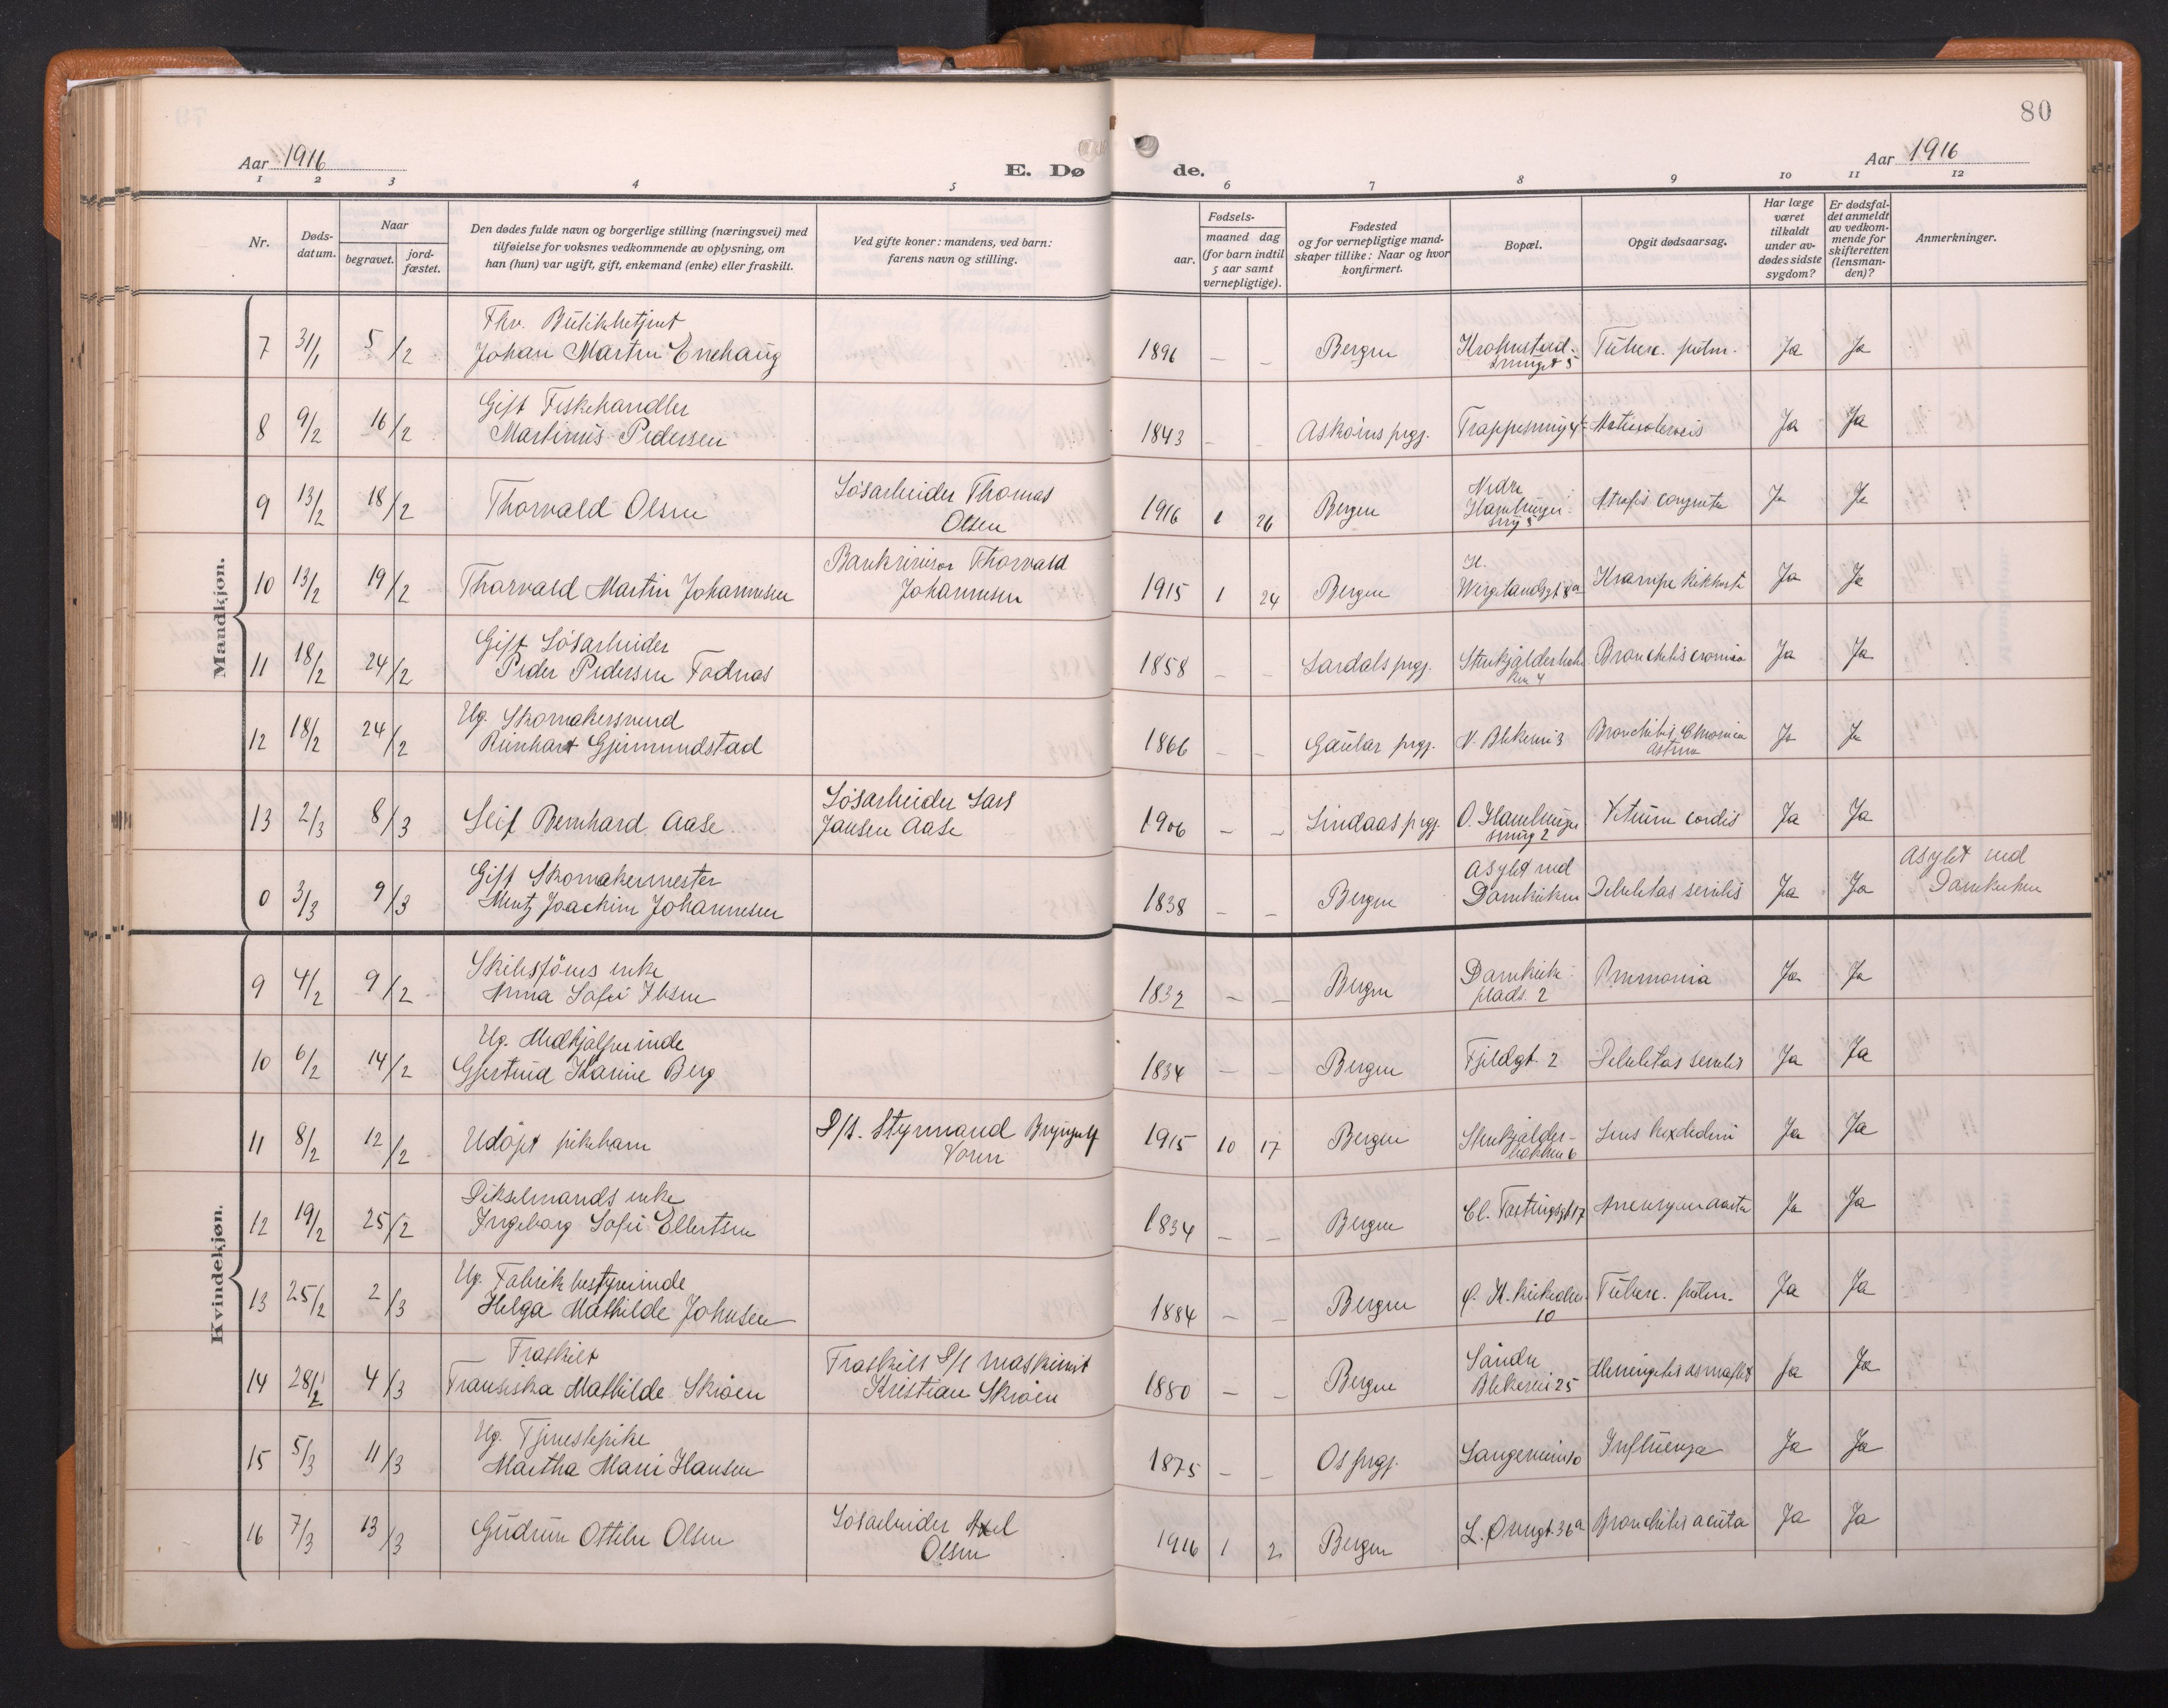 80
Aar 1916
E. Dø
de.
Aar 1916
1 2 3 4 5 6 7 8 9 10 11 12
Nr.
Døds-
datum.
Naar
begravet.
jord-
fæstet.
Den dødes fulde navn og borgerlige stilling (næringsvei) med
tilføielse for voksnes vedkommende av oplysning, om
han (hun) var ugift, gift, enkemand (enke) eller fraskilt.
Ved gifte koner: mandens, ved barn:
farens navn og stilling.
Fødsels-
aar.
maaned dag
(for barn indtil
5 aar samt
vernepligtige).
Fødested
og for vernepligtige mand-
skaper tillike: Naar og hvor
konfirmert.
Bopæl.
Opgit dødsaarsag.
Har læge
været
tilkaldt
under av-
dødes sidste
sygdom?
Er dødsfal-
det anmeldt
av vedkom-
mende for
skifteretten
(lensman-
den)?
Anmerkninger.
Mandkjøn.
7 31/1 5/2 Johan Martin Enehaug 1896 — — Bergen Tuberc. pulm. Ja Ja
8 9/2 16/2 Gift Fiskehandler
Martinus Pedersen 1843 - - Askøens prgj. Trappesmug 4 Ja Ja
9 13/2 18/2 Thorvald Olsen Løsarbeider Thomas
Olsen 1916 1 26 Bergen Nedre
Hamburger-
smg 5 Ja Ja
10 13/2 19/2 Thorvald Martin Johannesen Bankrevisor Thorvald
Johannesen 1915 1 24 Bergen H.
Wergelandsgt 8a Krampe kikhoste Ja Ja
11 18/2 24/2 Gift Løsarbeider
Peder Pedersen Fadnas 1858 - - Bronchitis cronica Ja Ja
12 18/2 24/2 Ug. Skomakersvend
Reinhart Gjermundstad 1866 - - Gaular prgj. V. Blekevei 3 Bronchitis Chronica
Astma Ja Ja
13 2/3 8/3 Leif Bernhard Aase Løsarbeider Lars
Jansen Aase 1906 - - Lindaas prgj. O. Hamburger
smug 2 Vitium cordis Ja Ja
0 3/3 9/3 Gift Skomakermester
Mentz Joachim Johannesen 1838 - - Bergen Asylet ved
Domkirken Debilitas senilis Ja Ja Asylet ved
Domkirken
Kvindekjøn.
9 4/2 9/2 Skibsførers enke
Anna Sofie Ibsen 1832 - - Bergen Domkirke-
plads. 2 Pnmonia Ja Ja
10 6/2 14/2 Ug. Medhjælperinde
Gjertrud Karine Berg 1834 - - Bergen Fjeldgt. 2 Debilitas senilis Ja Ja
11 8/2 12/2 Udøpt pikebarn D/s. Styrmand Brynjulf
1915 10 17 Bergen Stenkjelder-
bakken 6 Ja Ja
12 19/2 25/2 enke
Ingeborg Sofie Ellertsen 1834 - - Bergen Ja Ja
13 25/2 2/3 Ug. Fabrikbestyrerinde
Helga Mathilde Johnsen 1884 - - Bergen 10 Tuberc. pulm. Ja Ja
14 28/2 4/3 Fraskilt
Fransiska Mathilde Skiøen Fraskilt D/s maskinist
Kristian Skiøen 1880 - - Bergen Søndre
Blekevei 25 Ja Ja
15 5/3 11/3 Ug. Tjenestepike
Martha Marie Hansen 1875 - - Os prgj. Langeveien 10 Influenza Ja Ja
16 7/3 13/3 Gudrun Ottilie Olsen Løsarbeider Axel
Olsen 1916 1 2 Bergen L. Øvregt. 36a Bronchitis acuta Ja Ja